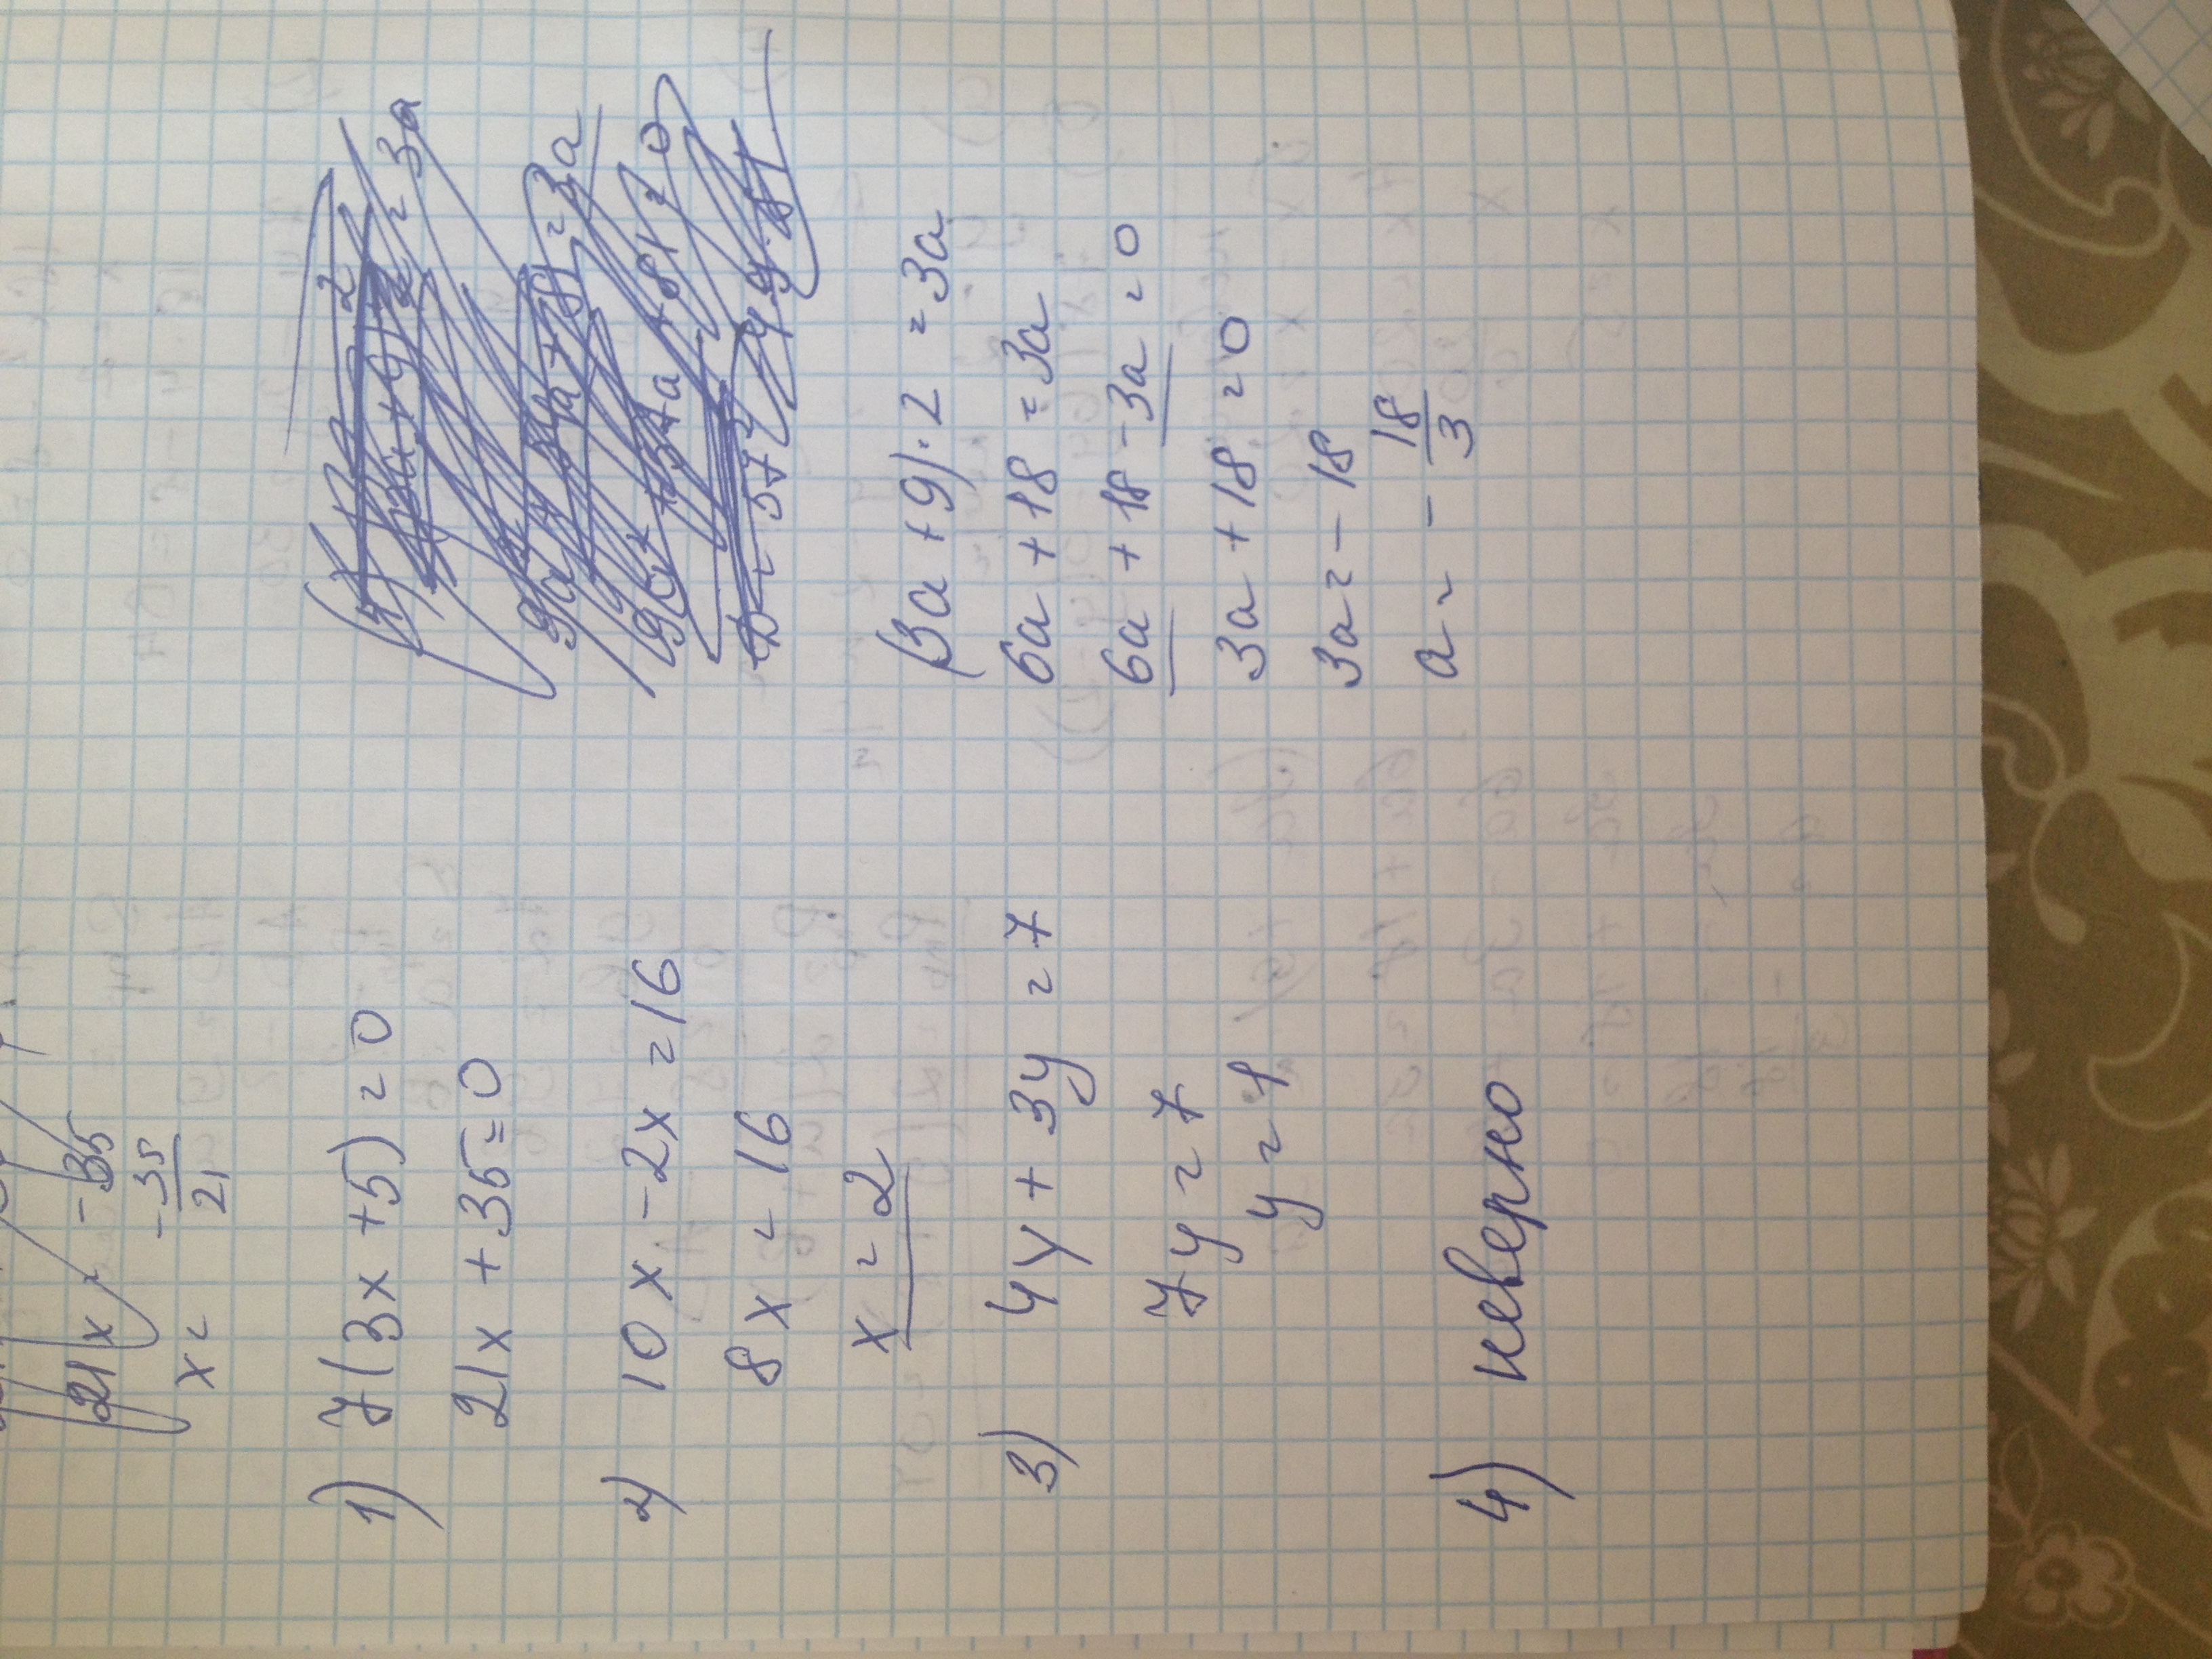 21x = -35
x = -35/21
1) 7(3x+5)=0
21x+35=0
2) 10x-2x=16
8x=16
x=2
3) 4y+3y=7
7y=7
y=1
4) неверно
(3a+9)·2=3a
6a+18=3a
6a+18-3a=0
3a+18=0
3a=-18
a=-18/3